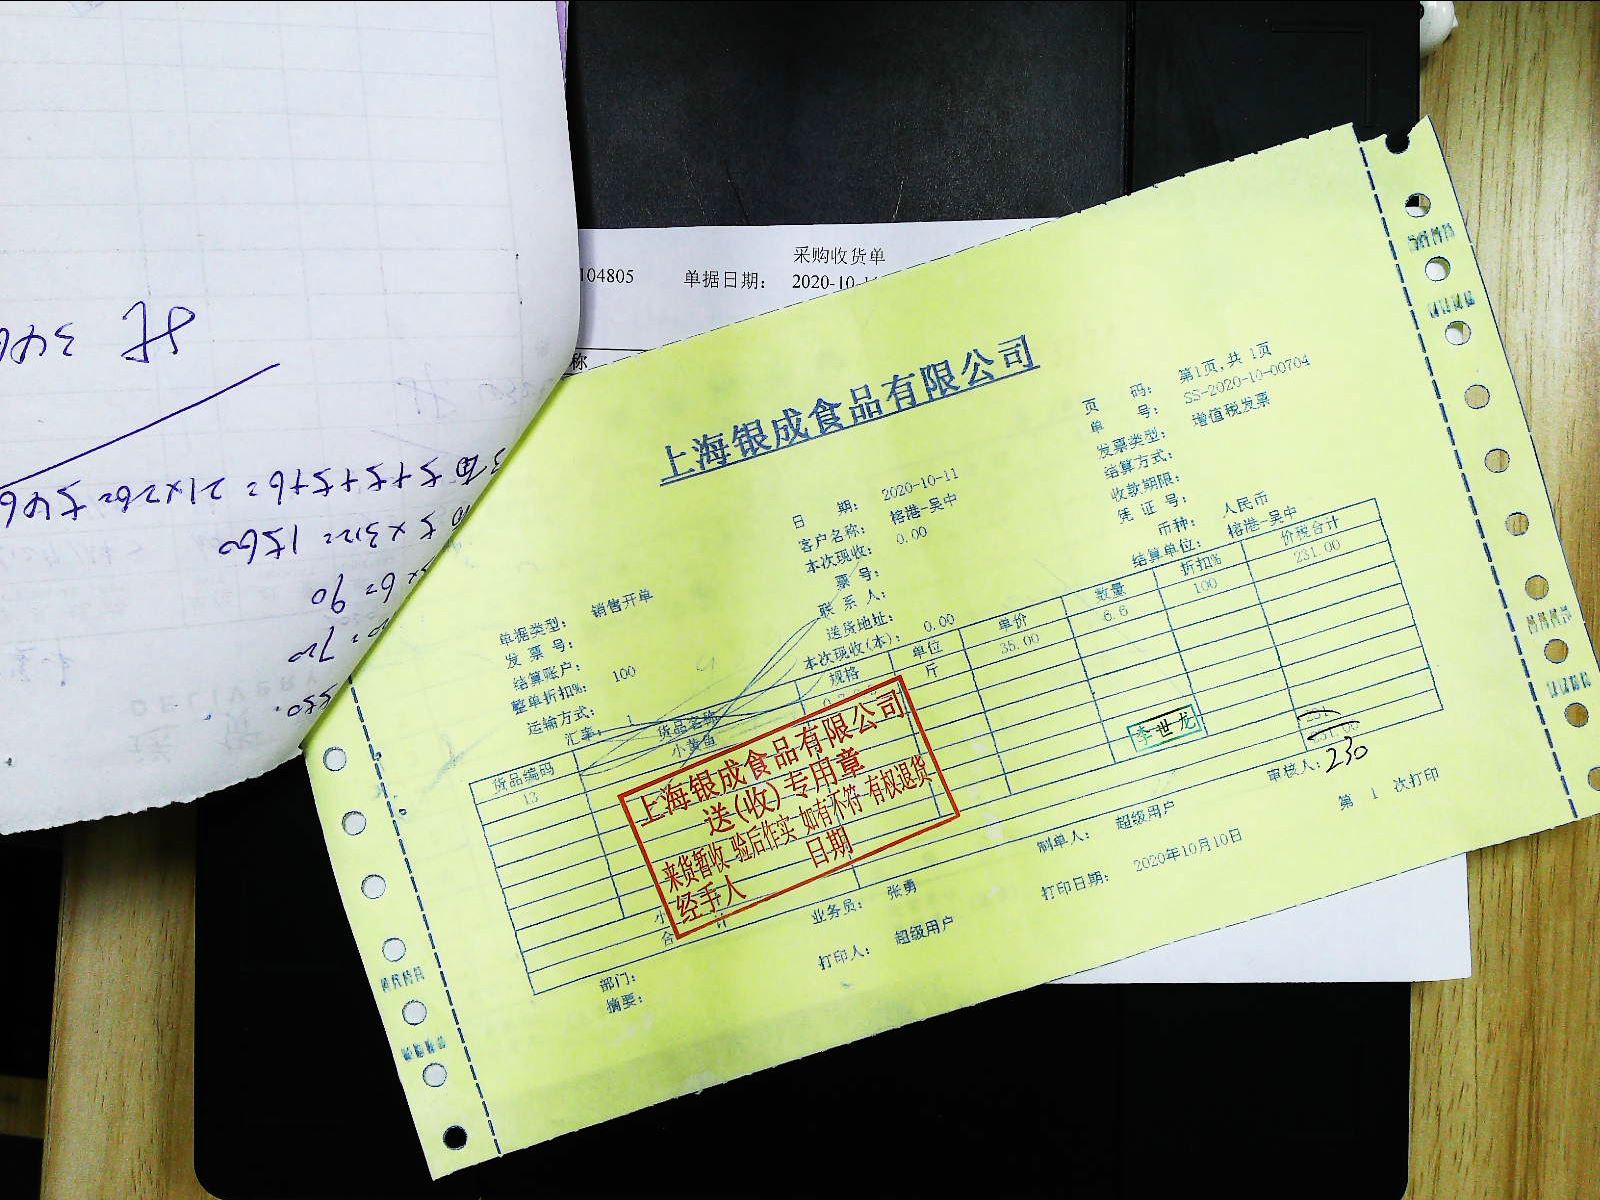 采购收货单
104805 单据日期: 2020-10-1
称
上海银成食品有限公司
页 码: 第1页,共 1页
单 号: SS-2020-10-00704
发票类型: 增值税发票
结算方式:
收款期限:
凭 证 号:
币种: 人民币
结算单位: 榕港-吴中
日 期: 2020-10-11
客户名称: 榕港-吴中
本次现收: 0.00
票 号:
联 系 人:
送货地址:
本次现收(本): 0.00
单据类型: 销售开单
发 票 号:
结算账户:
整单折扣%: 100
运输方式:
汇率: 1
货品编码 货品名称 规格 单位 单价 数量 折扣% 价税合计
13 小黄鱼 斤 35.00 6.6 100 231.00
上海银成食品有限公司
送(收)专用章
来货暂收 验后作实 如有不符 有权退货
经手人 日期
李世龙
小
合 计
230
部门: 业务员: 张勇 制单人: 超级用户 审核人:
摘要: 打印人: 超级用户 打印日期: 2020年10月10日 第 1 次打印
5+5+5+6=21×26=546
5×312=1560
×6=90
=70